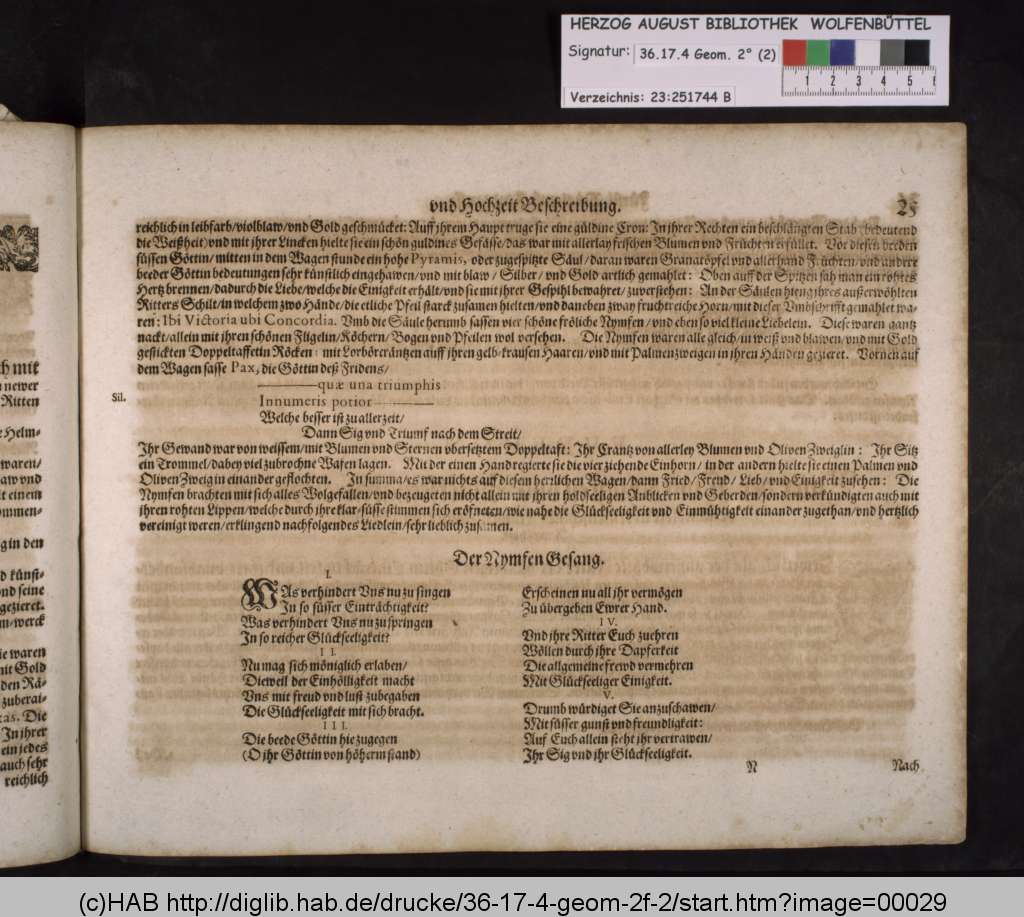 HERZOG AUGUST BIBLIOTHEK WOLFENBÜTTEL
Signatur: 36.17.4 Geom. 2° (2)
1 2 3 4 5
Verzeichnis: 23:251744 B
vnd Hochzeit Beschreibung. 25
reichlich in leibfarb/violblaw/vnd Gold geschmücket: Auff jhrem Haupt truge sie eine güldine Cron: In jhrer Rechten ein beschlängten Stab (bedeutend
die Weißheit) vnd mit jhrer Lincken hielte sie ein schön guldines Gefässe/das war mit allerlay frischen Blumen vnd Früchten erfüllet. Vor diesen beeden
süssen Göttin/mitten in dem Wagen stunde ein hohe Pyramis, oder zugespitzte Säul/daran waren Granatöpfel vnd allerhand Früchten/vnd andere
beeder Göttin bedeutungen sehr künstlich eingehawen/vnd mit blaw/ Silber/ vnd Gold artlich gemahlet: Oben auff der Spitzen sah man ein rohtes
Hertz brennen/dadurch die Liebe/welche die Einigkeit erhält/vnd sie mit jhrer Gespihl bewahret/zuverstehen: An der Säulen hieng jhres außerwöhlten
Ritters Schilt/in welchem zwo Hände/die etliche Pfeil starck zusamen hielten/vnd daneben zway fruchtreiche Horn/mit dieser Vmbschrifft gemahlet wa-
ren: Ibi Victoria ubi Concordia. Vmb die Säule herumb sassen vier schöne fröliche Nymfen/ vnd eben so viel kleine Liebelein. Diese waren gantz
nackt/allein mit jhren schönen Fligelin/Köchern/Bogen vnd Pfeilen wol versehen. Die Nymfen waren alle gleich/in weiß vnd blawen/vnd mit Gold
gestickten Doppeltaffetin Röcken: mit Lorbörerántzen auff jhren gelb-krausen Haaren/vnd mit Palmenzweigen in jhren Händen gezieret. Vornen auf
dem Wagen sasse Pax, die Göttin deß Fridens/
Sil. ———quæ una triumphis
Innumeris potior———
Welche besser ist zu aller zeit/
Dann Sig vnd Triumf nach dem Streit/
Ihr Gewand war von weissem/mit Blumen vnd Sternen übersetztem Doppeltaft: Ihr Crantz von allerley Blumen vnd Oliven Zweiglin: Ihr Sitz
ein Trommel/dabey viel zubrochne Wafen lagen. Mit der einen Hand regierte sie die vier ziehende Einhorn/ in der andern hielte sie einen Palmen vnd
Oliven Zweig in einander geflochten. In summa/es war nichts auf diesem herrlichen Wagen/dann Fried/ Frend/ Lieb/ vnd Einigkeit zusehen: Die
Nymfen brachten mit sich alles Wolgefallen/vnd bezeugeten nicht allein mit jhren holdseeligen Anblicken vnd Geberden/sondern verkündigten auch mit
jhren rohten Lippen/welche durch jhre klar-süsse stimmen sich eröfneten/wie nahe die Glückseeligkeit vnd Einmühtigkeit einander zugethan/vnd hertzlich
vereinigt weren/erklingend nachfolgendes Liedlein/sehr lieblich zusamen.
Der Nymfen Gesang.
I.
WAs verhindert Vns nu zu singen
In so süsser Einträchtigkeit?
Was verhindert Vns nu zu springen
In so reicher Glückseeligkeit?
II.
Nu mag sich möniglich erlaben/
Dieweil der Einhölligkeit macht
Vns mit freud vnd lust zubegaben
Die Glückseeligkeit mit sich bracht.
III.
Die beede Göttin hie zugegen
(O jhr Göttin von höhern stand)
Erscheinen nu all jhr vermögen
Zu übergeben Ewrer Hand.
IV.
Vnd jhre Ritter Euch zuehren
Wöllen durch jhre Dapferkeit
Die allgemeine frewd vermehren
Mit Glückseeliger Einigkeit.
V.
Drumb würdiget Sie anzuschawen/
Mit süsser gunst vnd freundligkeit:
Auf Euch allein steht jhr vertrawen/
Ihr Sig vnd jhr Glückseeligkeit.
N Nach
(c)HAB http://diglib.hab.de/drucke/36-17-4-geom-2f-2/start.htm?image=00029